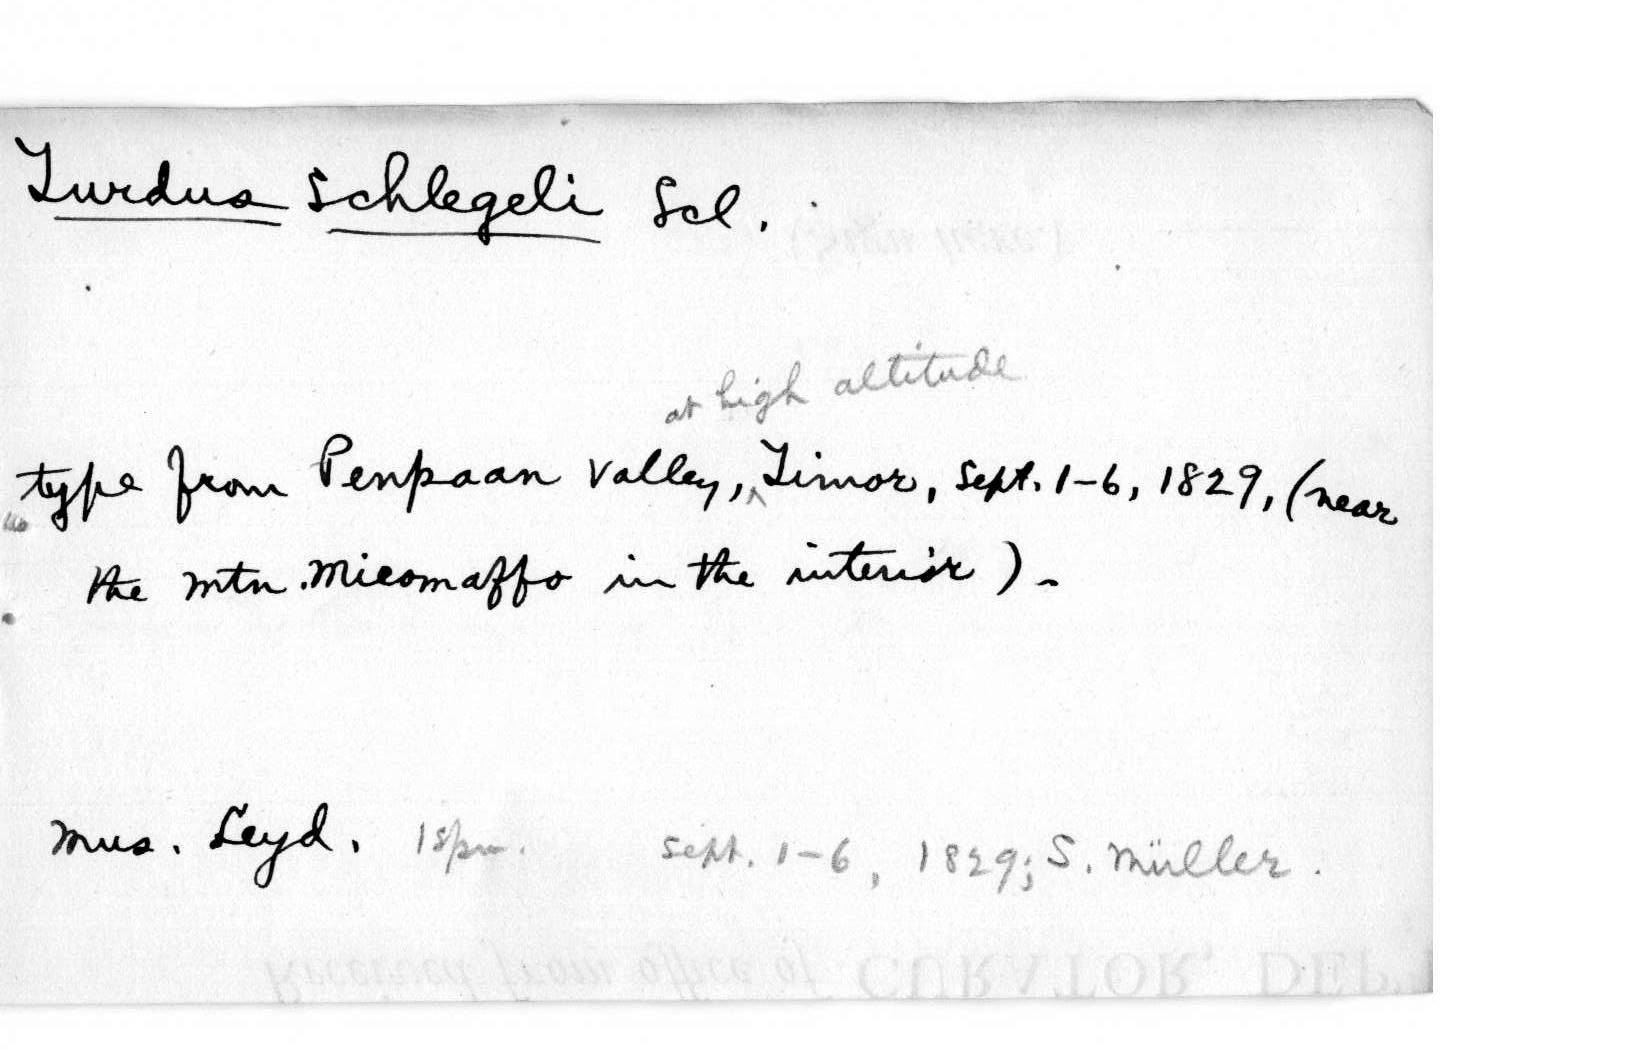 Turdus schlegeli Scl.
at high altitude
type from Penpaan valley, ^ Timor, Sept. 1-6, 1829, (near
the mtn. Miomaffo in the interior) -
Mus. Leyd. 1 spm. Sept. 1-6, 1829; S. Müller.
Received from office of CURATOR, DEP